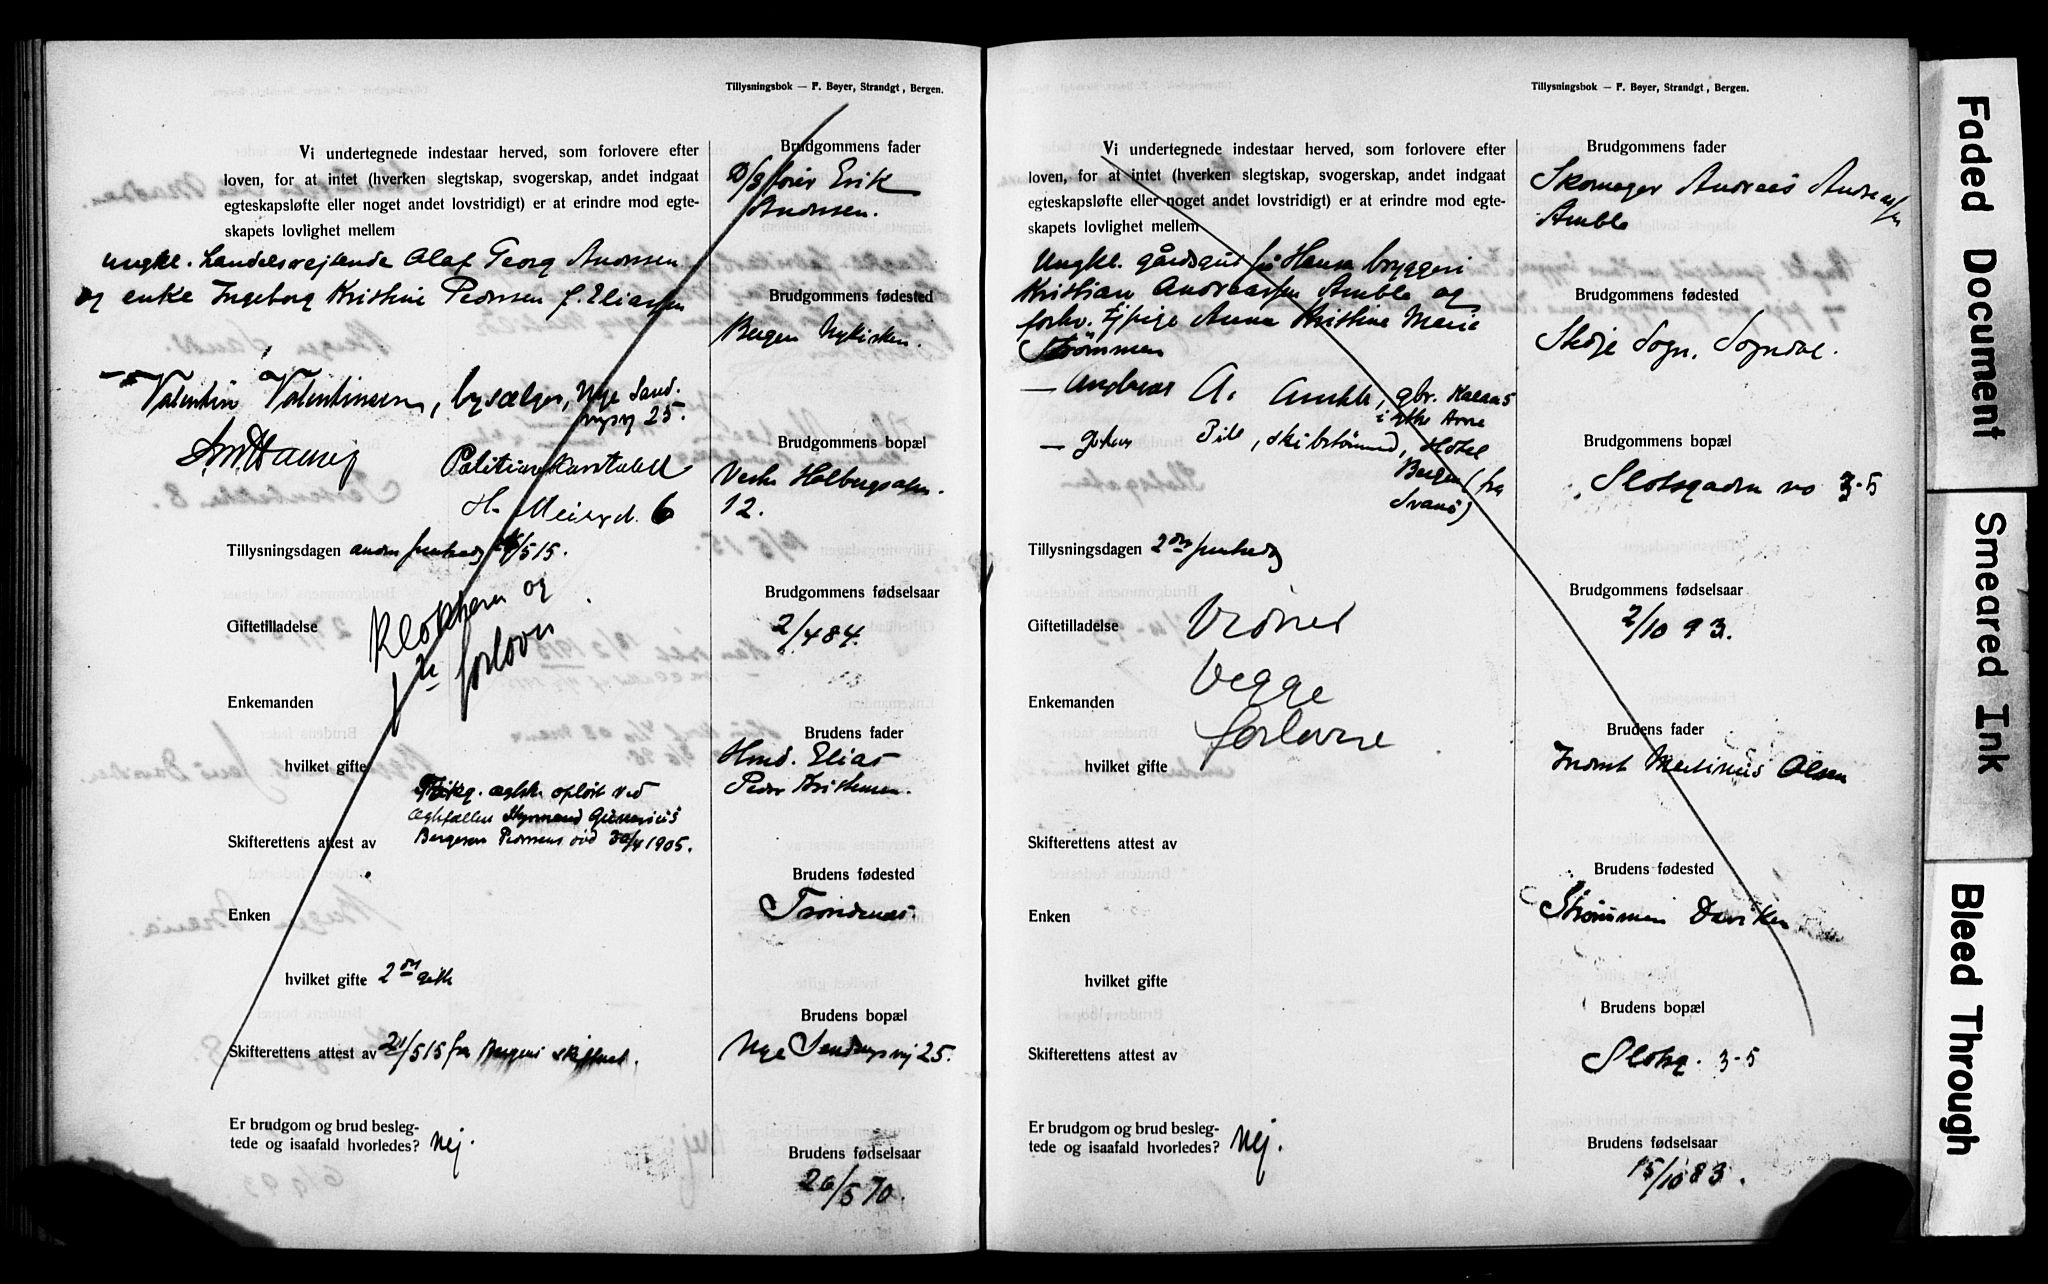 Tillysningsbok — F. Bøyer, Strandgt, Bergen.
Vi undertegnede indestaar herved, som forlovere efter
loven, for at intet (hverken slegtskap, svogerskap, andet indgaat
egteskapsløfte eller noget andet lovstridigt) er at erindre mod egte-
skapets lovlighet mellem
ungkl. handelsrejsende Olaf Georg Andersen
og enke Ingeborg Kristine Pedersen f. Eliassen
Valentin Valentinsen, bysælger, Nye Sand-
vigsv 25.
Politikonstabel
H. Meiersgt. 6
Tillysningsdagen anden pinsedag 24/5 15.
Giftetilladelse
Klokkeren og
forlover
Enkemanden
hvilket gifte
Fhv. egtsk. opløst ved
Bergesen Pedersens død 30/4 1905.
Skifterettens attest av
Enken
hvilket gifte 2det gifte
Skifterettens attest av 21/5 15 fra Bergens skifteret.
Er brudgom og brud besleg-
tede og isaafald hvorledes? Nej.
Brudgommens fader
D/S fører Erik
Andersen.
Brudgommens fødested
Bergen Nykirken.
Brudgommens bopæl
Vestre Holbergsalm.
12.
Brudgommens fødselsaar
2/4 84.
Brudens fader
Hmd. Elias
Peder Kristensen.
Brudens fødested
Trondenes.
Brudens bopæl
Nye Sandvigsvej 25.
Brudens fødselsaar
26/5 70.
Tillysningsbok — F. Bøyer, Strandgt, Bergen.
Vi undertegnede indestaar herved, som forlovere efter
loven, for at intet (hverken slegtskap, svogerskap, andet indgaat
egteskapsløfte eller noget andet lovstridigt) er at erindre mod egte-
skapets lovlighet mellem
Ungkl. gårdsgut på Hansa bryggeri
Kristian Andreassen Amble og
forhv. Tj.pige Anna Kristine Marie
Strømmen
— Andreas A. Amble, gbr.
i Arne
— Johan Pile, skibstømmd, Hotel
Bergen (fra
Svanø)
Tillysningsdagen 2den pinsedag
Giftetilladelse
Enkemanden
Begge
forlovere
hvilket gifte
Skifterettens attest av
Enken
hvilket gifte
Skifterettens attest av
Er brudgom og brud besleg-
tede og isaafald hvorledes? Nej.
Brudgommens fader
Skomager Andreas Andreassen
Amble
Brudgommens fødested
Stedje Sogn, Sogndal.
Brudgommens bopæl
Slotsgaden no 3-5
Brudgommens fødselsaar
2/10 93.
Brudens fader
Inderst Martinius Olsen
Brudens fødested
Strømmen Daviken
Brudens bopæl
Slotsg. 3-5
Brudens fødselsaar
15/10 83.
Faded Document
Smeared Ink
Bleed Through